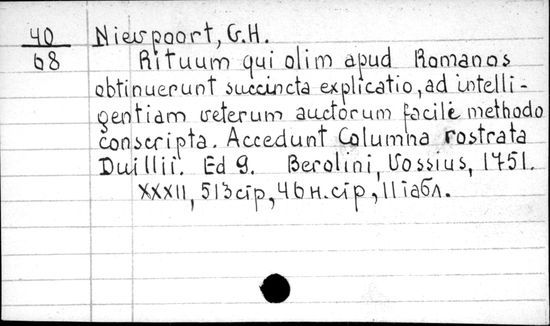 40
68
Nieupoort, G.H.
Rituum qui olim apud Romanos
obtinuerunt succincta explicatio, ad intelli-
gentiam veterum auctorum facile methodo
conscripta. Accedunt Columna rostrata
Duillii. Ed 9. Berolini, Vossius, 1751.
XXXII, 513 стр, 46 н. стр, 11 табл.